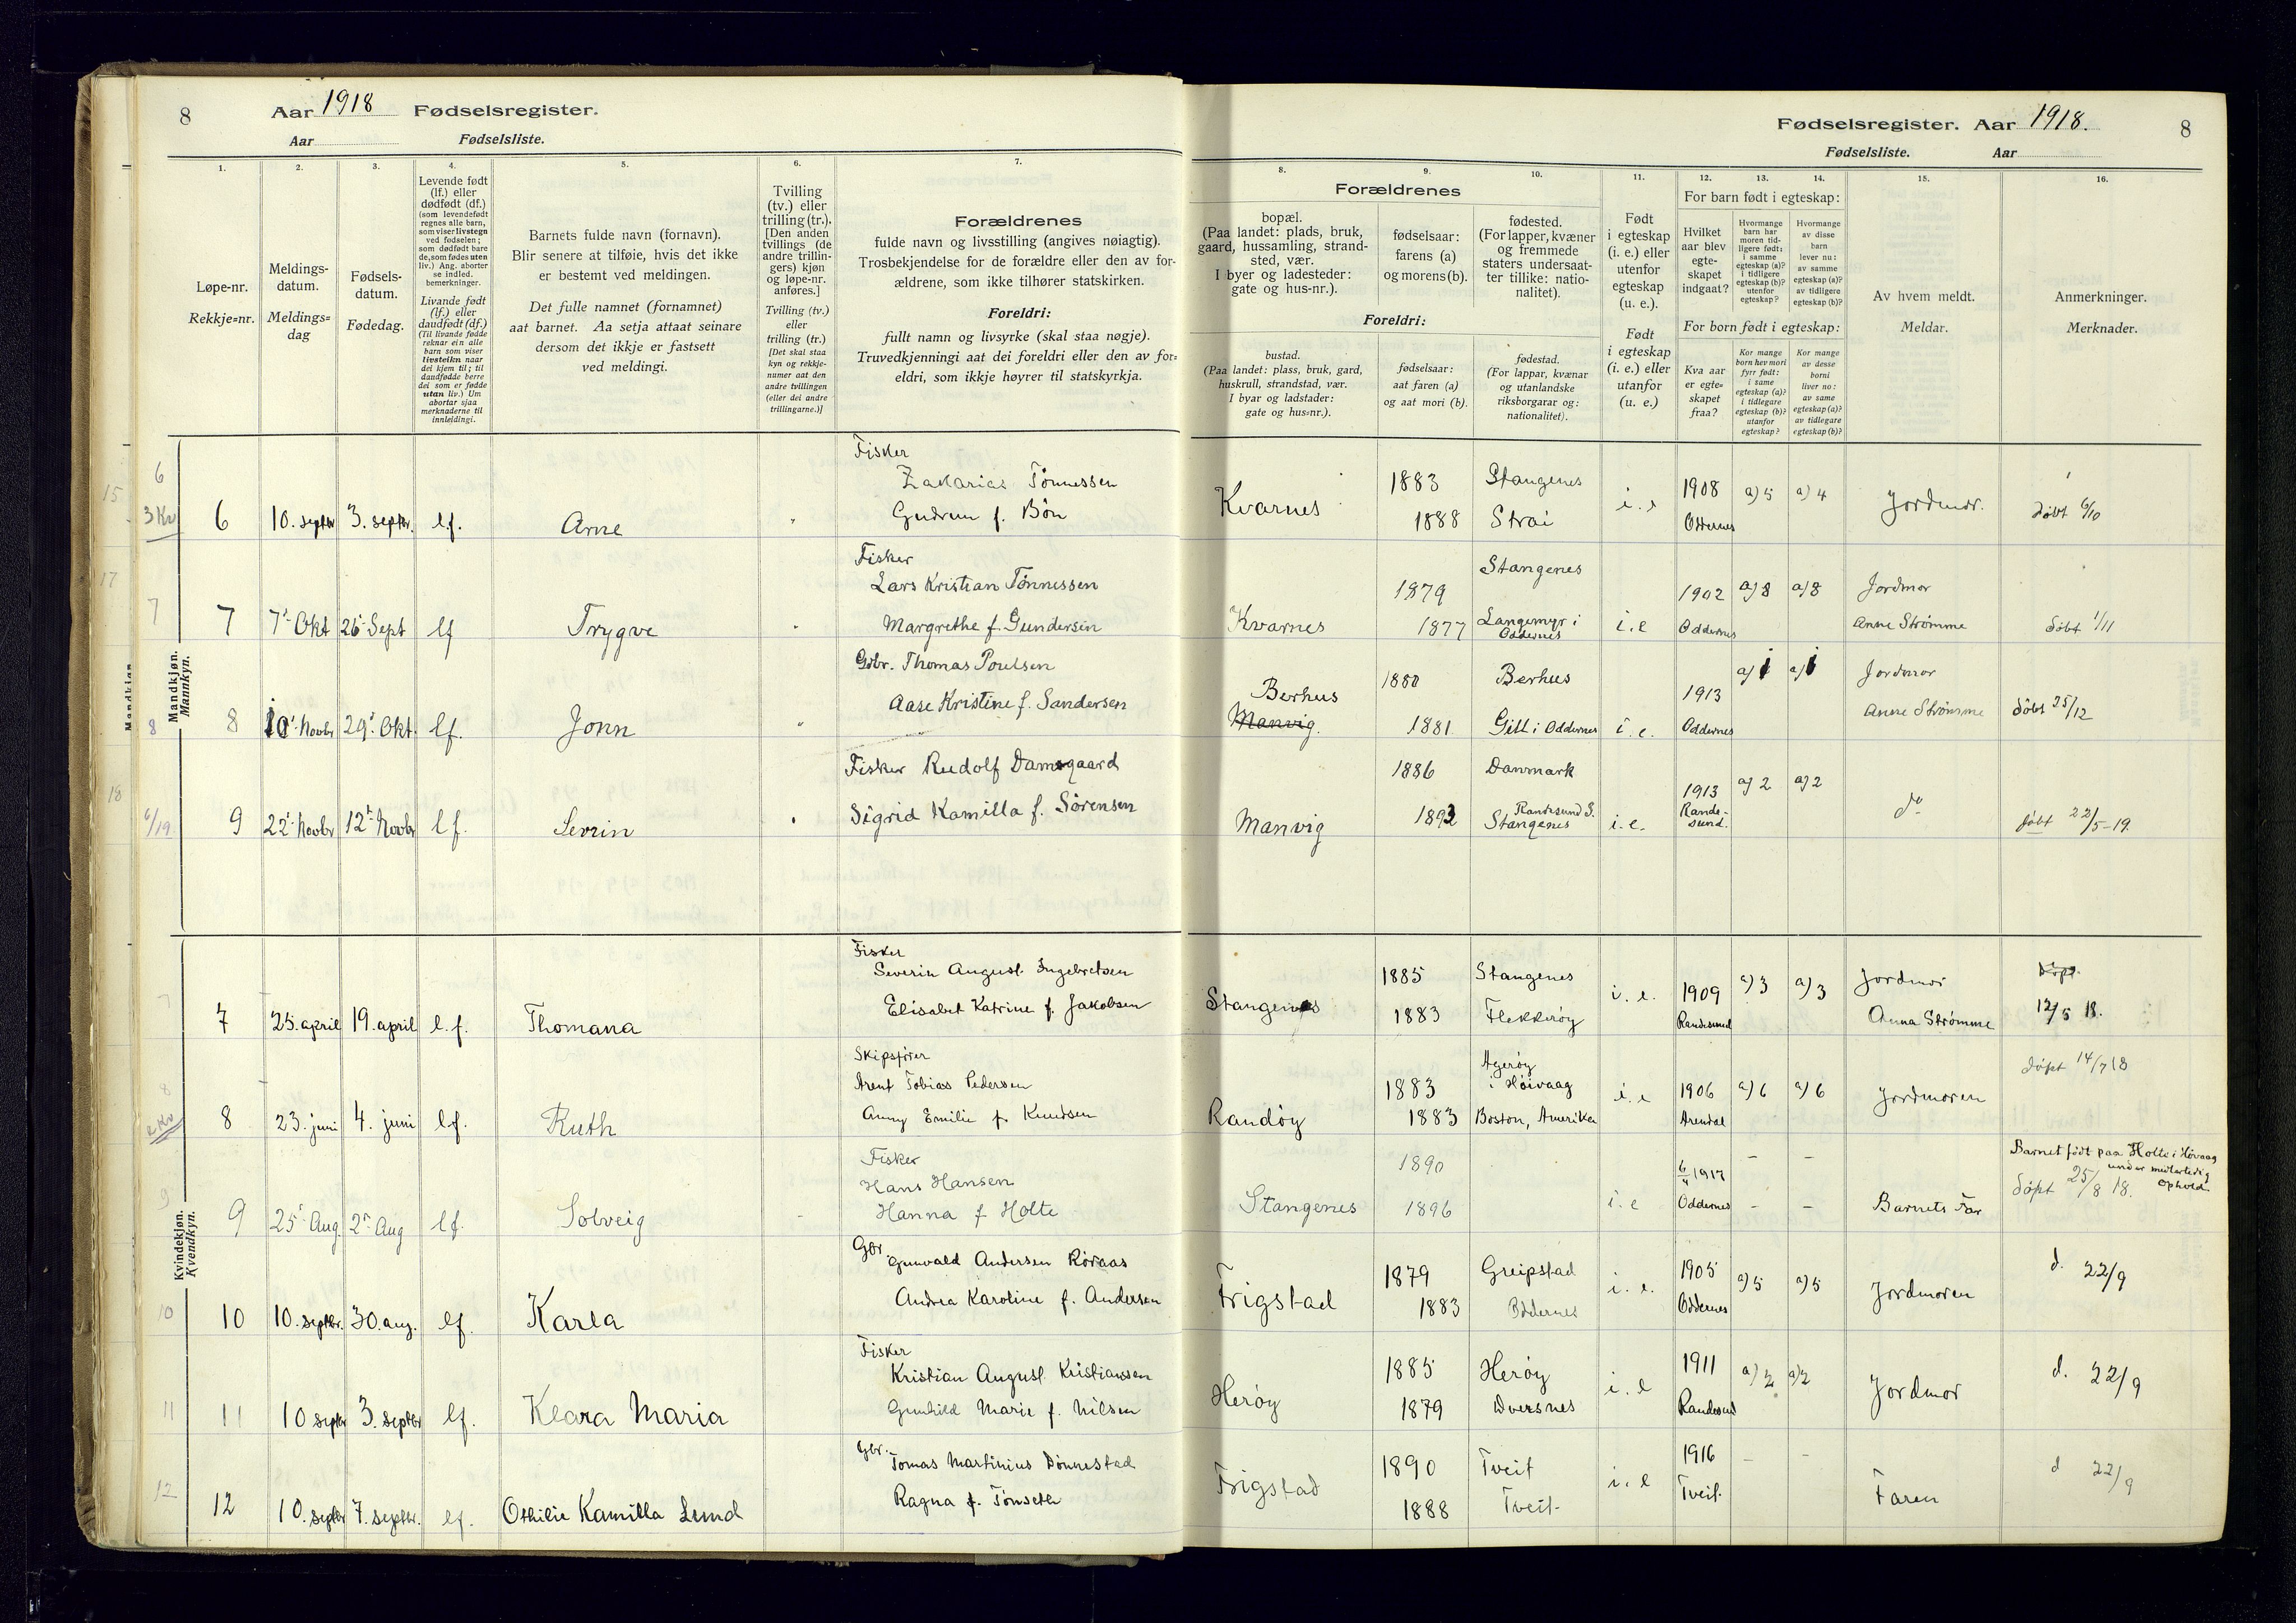 8 Aar 1918 Fødselsregister.
Aar Fødselsliste.
Fødselsregister. Aar 1918. 8
Fødselsliste. Aar
1. 2. 3. 4. 5. 6. 7.
Løpe-nr.
Rekkje=nr.
Meldings-
datum.
Meldings=
dag
Fødsels-
datum.
Fødedag.
Levende født
(lf.) eller
dødfødt (df.)
(som levendefødt
regnes alle barn,
som viser livstegn
ved fødselen;
som dødfødt bare
de, som fødes uten
liv.) Ang. aborter
se indled.
bemerkninger.
Livande født
(lf.) eller
daudfødt (df.)
(Til livande fødde
reknar ein alle
barn som viser
livsteikn naar
dei kjem til; til
daudfødde berre
dei som er fødde
utan liv.) Um
abortar sjaa
merknaderne til
innleidingi.
Barnets fulde navn (fornavn).
Blir senere at tilføie, hvis det ikke
er bestemt ved meldingen.
Det fulle namnet (fornamnet)
aat barnet. Aa setja attaat seinare
dersom det ikkje er fastsett
ved meldingi.
Tvilling
(tv.) eller
trilling (tr.).
[Den anden
tvillings (de
andre trillin-
gers) kjøn
og løpe-nr.
anføres.]
Tvilling (tv.)
eller
trilling (tr.)
[Det skal staa
kyn og rekkje-
numer aat den
andre tvillingen
(eller dei andre
trillingarne.)]
Forældrenes
fulde navn og livsstilling (angives nøiagtig).
Trosbekjendelse for de forældre eller den av for-
ældrene, som ikke tilhører statskirken.
Foreldri:
fullt namn og livsyrke (skal staa nøgje).
Truvedkjenningi aat dei foreldri eller den av for=
eldri, som ikkje høyrer til statskyrkja.
8. 9. 10. 11. 12. 13. 14. 15. 16.
Forældrenes
bopæl.
(Paa landet: plads, bruk,
gaard, hussamling, strand-
sted, vær.
I byer og ladesteder:
gate og hus-nr.).
fødselsaar:
farens (a)
og morens (b).
fødested.
(For lapper, kvæner
og fremmede
staters undersaat-
ter tillike: natio-
nalitet).
Foreldri:
bustad.
(Paa landet: plass, bruk, gard,
huskrull, strandstad, vær.
I byar og ladstader:
gate og hus=nr.).
fødselsaar:
aat faren (a)
og aat mori (b).
fødestad.
(For lappar, kvænar
og utanlandske
riksborgarar og:
nationalitet).
Født
i egteskap
(i. e.) eller
utenfor
egteskap
(u. e.).
Født
i egteskap
(i. e.) eller
utanfor
(u. e.)
For barn født i egteskap:
Hvilket
aar blev
egte-
skapet
indgaat?
Hvormange
barn har
moren tid-
ligere født:
i samme
egteskap (a)?
i tidligere
egteskap (b)?
utenfor
egteskap?
Hvormange
av disse
barn
lever nu:
av samme
egteskap (a)?
av tidligere
egteskap (b)?
For born født i egteskap:
Kva aar
er egte=
skapet
fraa?
Kor mange
born hev mori
fyrr født:
i same
egteskap (a)?
i tidlegare
egteskap (b)?
utanfor
egteskap?
Kor mange
av desse
borni
liver no:
av same
egteskap (a)?
av tidlegare
egteskap (b)?
Av hvem meldt.
Meldar.
Anmerkninger.
Merknader.
Mandkjøn.
Mannkyn.
6 10. septbr 3. septbr. lf. Arne
Fisker
Zakarias Tønnessen
Gudrun f. Bøn
Kvarnes 1883 Stangenes
1888 Strai
i. e 1908 Oddernes a) 5 a) 4 Jordmdr. døbt 6/10
7 7' Okt 26' Sept lf Trygve
Fisker
Lars Kristian Tønnessen
Margrethe f. Gundersen
Kvarnes 1879 Stangenes
1877 Langemyr i
Oddernes
i. e 1902 Oddernes a) 8 a) 8 Jordmor
Anne Strømme døbt 1/11
8 10' Novbr 29' Okt. lf. Jonn
Gdbr. Thomas Poulsen
Aase Kristine f. Sandersen
Berhus
Manvig.
1880 Berhus
1881 Gill i Oddernes
i. e. 1913 Oddernes a) 1 a) 1 Jordmor
Anne Strømme døbt 25/12
9 22' Novbr 12' Novbr lf. Sevrin
Fisker Rudolf Damsgaard
Sigrid Kamilla f. Sørensen
Manvig 1886 Danmark
1892 Randesund S.
Stangenes
i. e. 1913 Rande-
sund. a) 2 a) 2 do døbt 22/5-19.
Kvindekjøn.
Kvendkyn.
7 25. april 19. april l.f. Thomana
Fisker
Severin August Ingebretsen
Elisabet Katrine f. Jakobsen
Stangenes 1885 Stangenes
1883 Flekkerøy
i. e. 1909 Randesund a) 3 a) 3 Jordmor
Anna Strømme
Døpt.
12/5 18.
8 23. juni 4. juni l.f. Ruth
Skipsfører
Arent Tobias Pedersen
Anny Emilie f. Knudsen
Randøy 1883 Agerøy
i Høivaag
1883 Boston, Amerika
i. e 1906 Arendal a) 6 a) 6 Jordmoren døpt 14/7 18
9 25' Aug. 2' Aug lf. Solveig
Fisker
Hans Hansen
Hanna f Holte
Stangenes 1890
1896
i. e 1917 Oddernes – – Barnets Far
Barnet født paa Holte i Høvaag
under midlertidig
ophold.
døpt 25/8 18.
10 10. septbr. 30. aug. lf. Karla
Gbr.
Gunvald Andersen Røraas
Andrea Karoline f. Andersen
Frigstad 1879 Greipstad
1883 Oddernes
i. e. 1905 Oddernes a) 5 a) 5 Jordmoren d. 22/9
11 10 septbr 3. septbr lf. Klara Maria
Fisker
Kristian August Kristianssen
Gunhild Marie f. Nilsen
Herøy 1885 Herøy
1879 Dversnes
i. e 1911 Randesund a) 2 a) 2 Jordmor d. 22/9
12 10. septbr 7. septbr. lf. Othilie Kamilla Lund
Gbr.
Tomas Martinius Dønnestad
Ragna f. Tønseth
Frigstad 1890 Tveit
1888 Tveit
i. e 1916 Tveit. – – Faren d 22/9